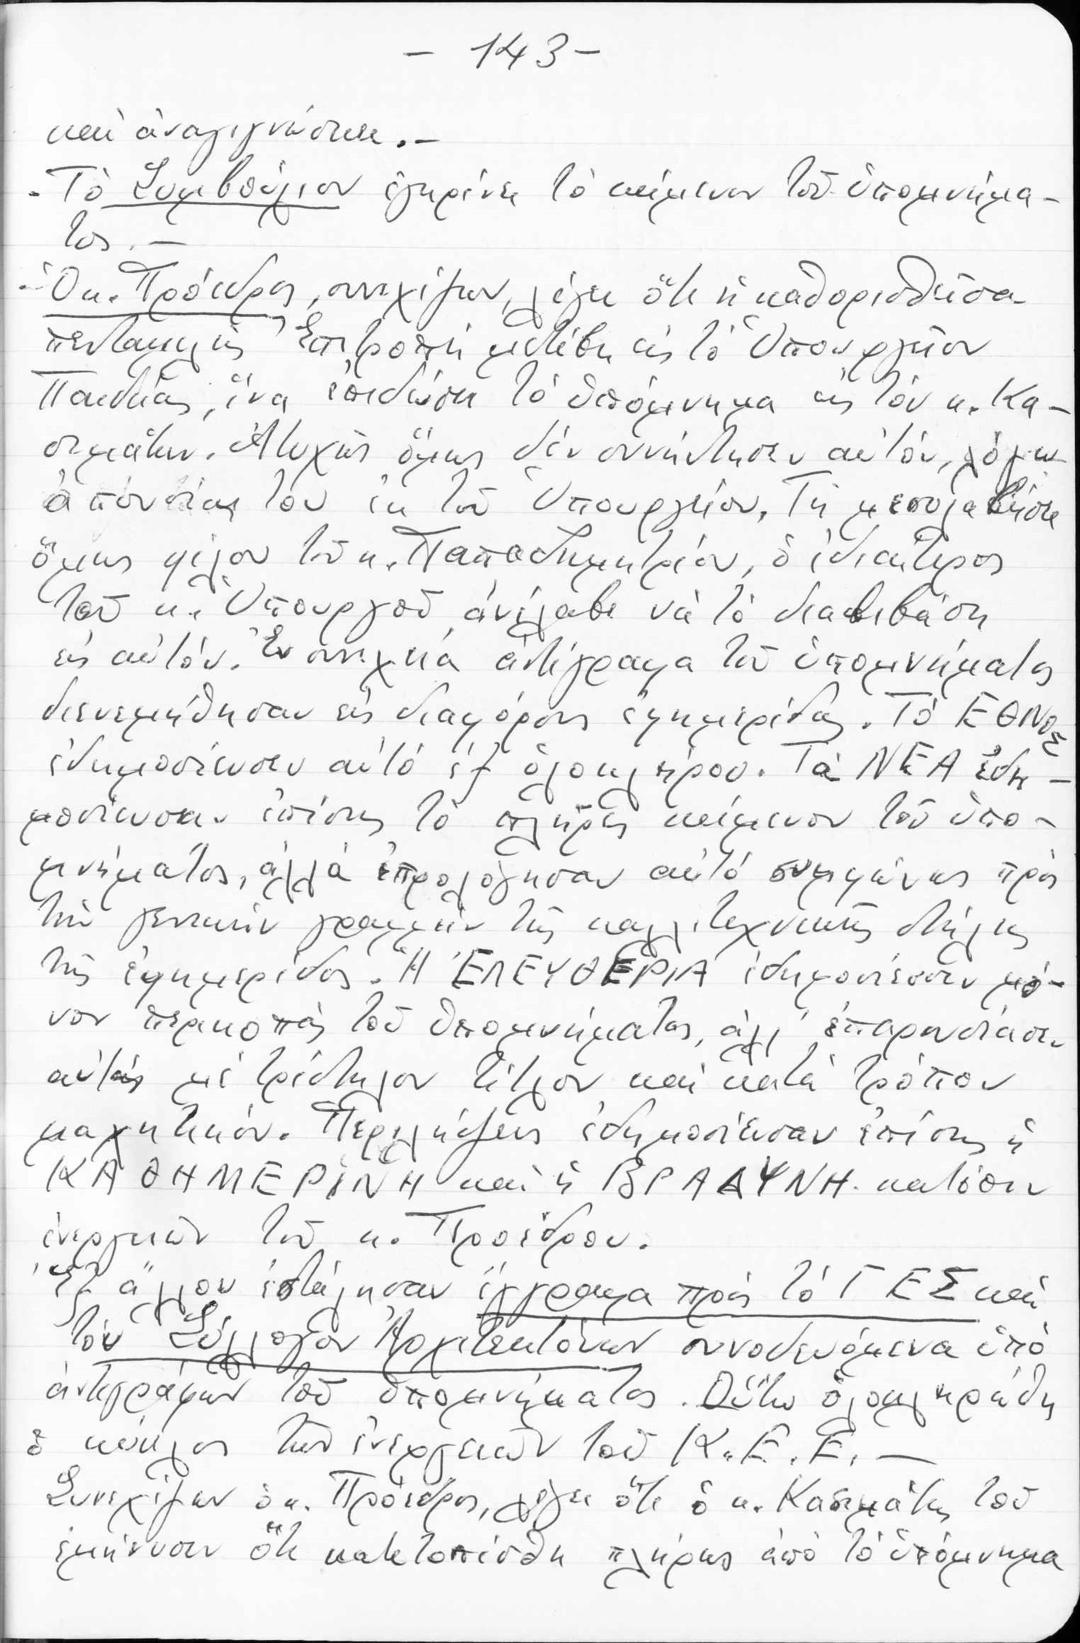 - 143 -
καὶ ἀναγιγνώσκει.-
-Τὸ Συμβούλιον ἐγκρίνει τὸ κείμενον τοῦ ὑπομνήμα-
τος.-
-Ὁ κ. Πρόεδρος, συνεχίζων, λέγει ὅτι ἡ καθορισθεῖσα
πενταμελὴς Ἐπιτροπὴ μετέβη εἰς τὸ Ὑπουργεῖον
Παιδείας, ἵνα ἐπιδώσῃ τὸ ὑπόμνημα εἰς τὸν κ. Κα-
σιμάτην. Ἀτυχῶς ὅμως δὲν συνήντησεν αὐτόν, λόγῳ
ἀπουσίας του ἐκ τοῦ Ὑπουργείου. Τῇ μεσολαβήσει
ὅμως φίλου τοῦ κ. Παπαδημητρίου, ὁ ἰδιαίτερος
τοῦ κ. Ὑπουργοῦ ἀνέλαβε νὰ τὸ διαβιβάσῃ
εἰς αὐτόν. Ἐν συνεχείᾳ ἀντίγραφα τοῦ ὑπομνήματος
διενεμήθησαν εἰς διαφόρους ἐφημερίδας. Τὸ ΕΘΝΟΣ
ἐδημοσίευσεν αὐτὸ ἐξ ὁλοκλήρου. Τὰ ΝΕΑ ἐδη-
μοσίευσαν ἐπίσης τὸ πλῆρες κείμενον τοῦ ὑπο-
μνήματος, ἀλλὰ ἐπρολόγησαν αὐτὸ συμφώνως πρὸς
τὴν γενικὴν γραμμὴν τῆς καλλιτεχνικῆς στήλης
τῆς ἐφημερίδος. Ἡ ἘΛΕΥΘΕΡΙΑ ἐδημοσίευσεν μό-
νον περικοπὰς τοῦ ὑπομνήματος, ἀλλ' ἐπαρουσίασε
αὐτὰς μὲ τρίστηλον τίτλον καὶ κατὰ τρόπον
μαχητικόν. Περιλήψεις ἐδημοσίευσαν ἐπίσης ἡ
ΚΑΘΗΜΕΡΙΝΗ καὶ ἡ ΒΡΑΔΥΝΗ κατόπιν
ἐνεργειῶν τοῦ κ. Προέδρου.
Ἐξ ἄλλου ἐστάλησαν ἔγγραφα πρὸς τὸ ΓΕΣ καὶ
τὸν Σύλλογον Ἀρχιτεκτόνων συνοδευόμενα ὑπὸ
ἀντιγράφων τοῦ ὑπομνήματος. Οὕτω ὁλοκληρώθη
ὁ κύκλος τῶν ἐνεργειῶν τοῦ Κ.Ε.Ε.-
Συνεχίζων ὁ κ. Πρόεδρος, λέγει ὅτι ὁ κ. Κασιμάτης τοῦ
ἐμήνυσεν ὅτι κατετοπίσθη πλήρως ἀπὸ τὸ ὑπόμνημα